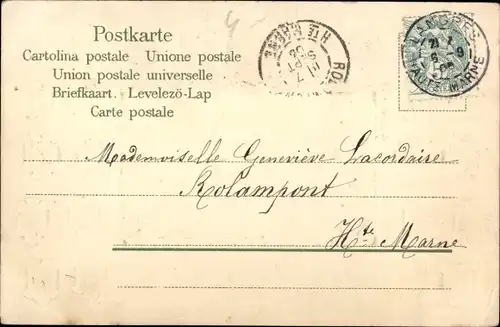 Postkarte
Cartolina postale Unione postale
Union postale universelle
Briefkaart. Levelezö-Lap
Carte postale
HTE MARNE
7
SEPT
MARNE
Mademoiselle Geneviève Lacordaire
Rolampont
Hte Marne